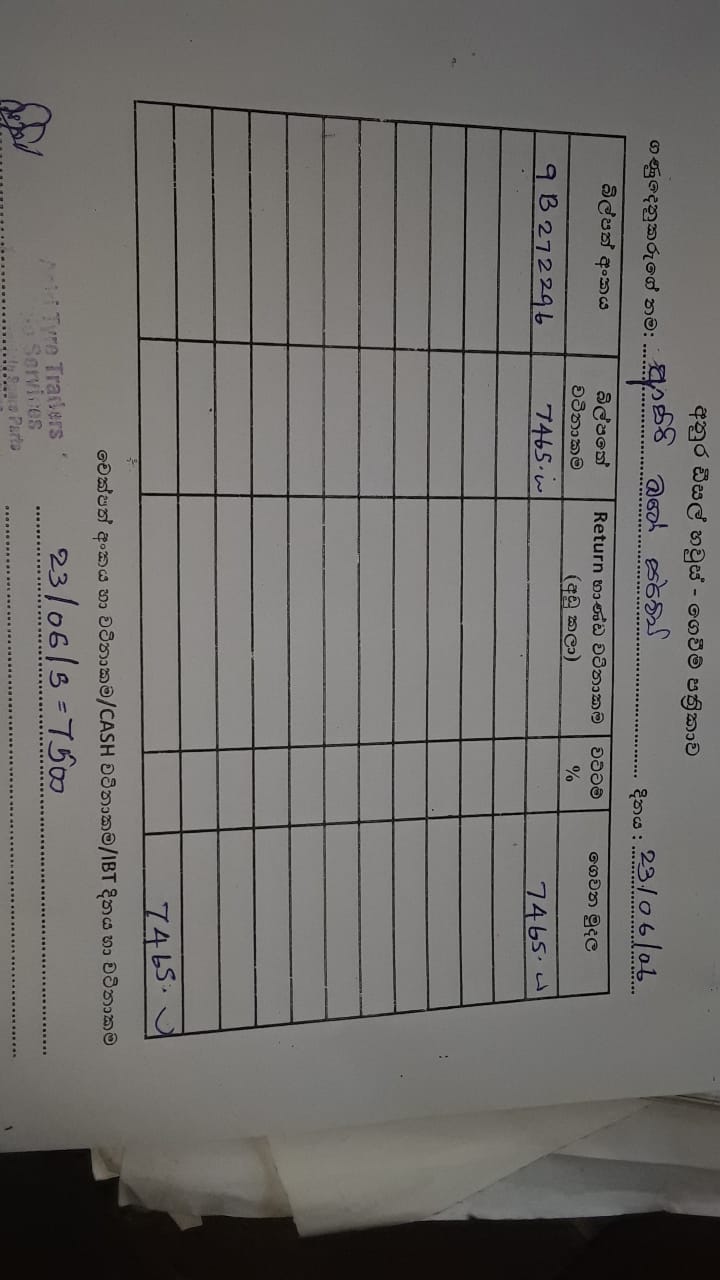 අනුර ඩීසල් හවුස් - ගෙවීම් පත්‍රිකාව
ගණුදෙනුකරුගේ නම: දිනය: 23/06/06
බිල්පත් අංකය බිල්පතේ වටිනාකම Return භාණ්ඩ වටිනාකම (අඩු කලා) වට්ටම් % ගෙවන මුදල
9B272296 7465. 7465.
7465.
චෙක්පත් අංකය හා වටිනාකම/CASH වටිනාකම/IBT දිනය හා වටිනාකම
23/06/5 = 7500
Tyre Traders
Services
Spare Parts